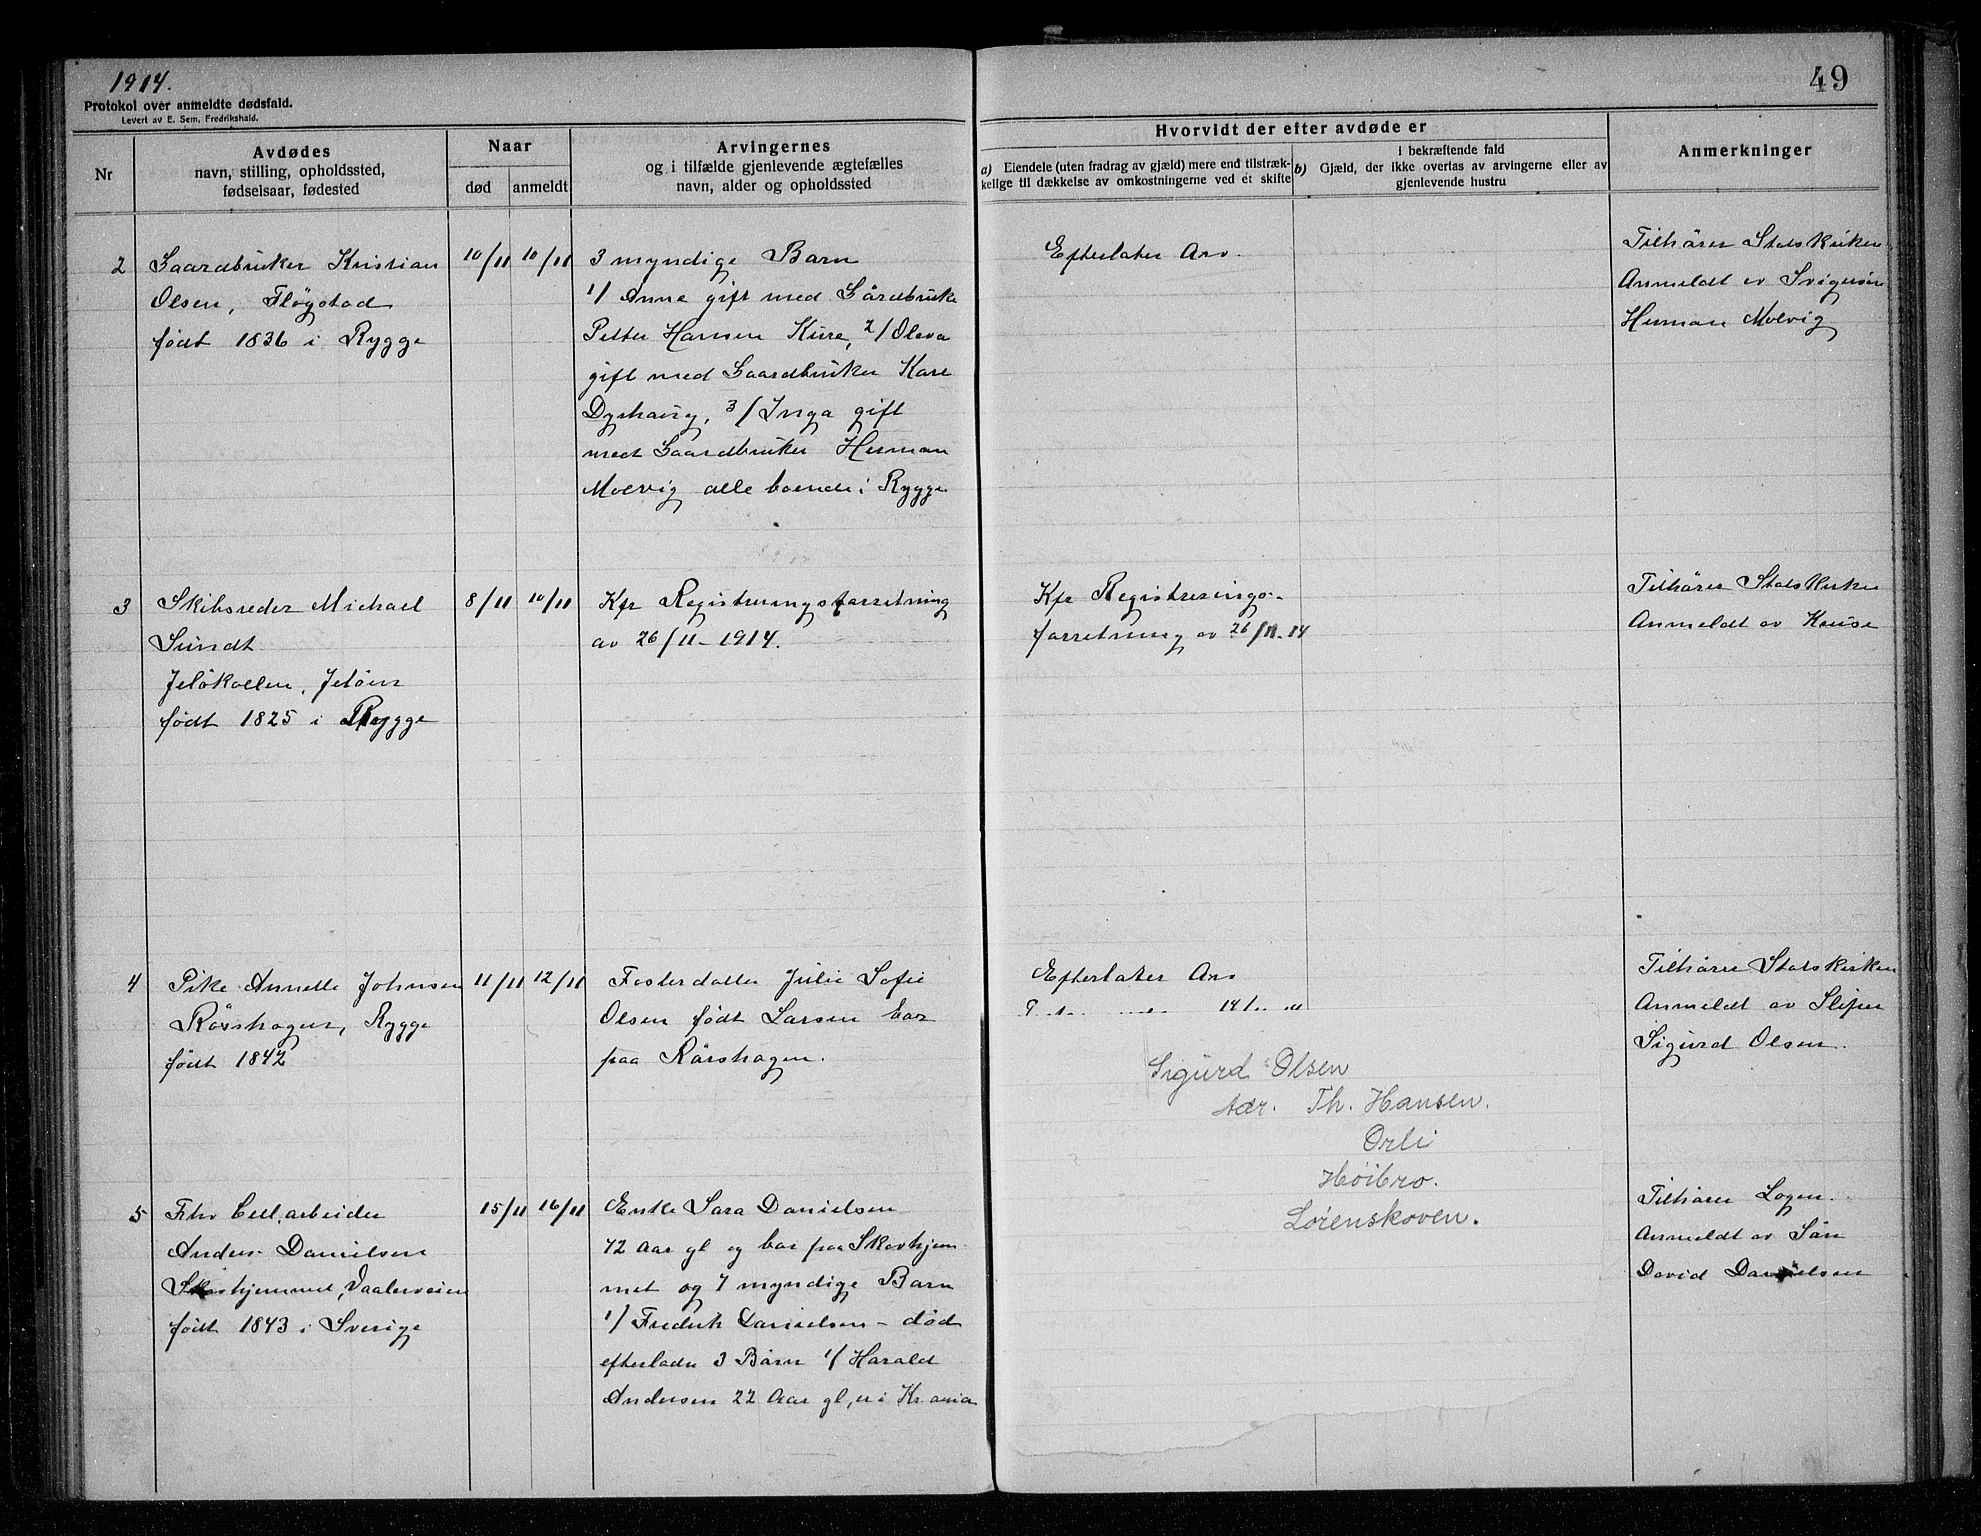 1914.
Protokol over anmeldte dødsfald.
Levert av E. Sem, Fredrikshald.
49
Nr
Avdødes
navn, stilling, opholdssted,
fødselsaar, fødested
Naar
død
anmeldt
Arvingernes
og i tilfælde gjenlevende ægtefælles
navn, alder og opholdssted
Hvorvidt der efter avdøde er
a) Eiendele (uten fradrag av gjæld) mere end tilstræk-
kelige til dækkelse av omkostningerne ved et skifte
i bekræftende fald
b) Gjæld, der ikke overtas av arvingerne eller av
gjenlevende hustru
Anmerkninger
2
Gaardbruker Kristian
Olsen, Fløgstad
født 1836 i Rygge
10/11
10/11
3 myndige Barn
1/ Anne gift med Gårdbruke
Petter Hansen Kure, 2/ Oleva
gift med Gaardbruker Kare
Dyrhaug, 3/ Inga gift
med Gaardbruker Herman
Molvig alle boende i Rygge
Efterlater Arv.
Tilhører Statskirken
Anmeldt av Svigersøn
Herman Molvig
3
Skibsreder Michael
Sundt
Jeløkollen, Jeløen
født 1825 i Rygge
8/11
10/11
Kfr Registreringsforretning
av 26/11-1914.
Kfr Registrerings-
forretning av 26/11-14
Tilhører Statskirken
Anmeldt av Kruse
4
Pike Annette Johnsen
Rørshagen, Rygge
født 1842
11/11
12/11
Fosterdatter Julie Sofie
Olsen født Larsen bor
paa Rørshagen.
Efterlater Arv
Sigurd Olsen
Adr. Th. Hansen.
Orli
Høibro.
Lørenskoven.
Tilhører Statskirken
Anmeldt av Sliper
Sigurd Olsen.
5
Fhv Cell.arbeider
Anders Danielsen
Skovhjemmet, Vaalerveien
født 1843 i Sverige
15/11
16/11
Enke Sara Danielsen
72 Aar gl og bor paa Skovhjem-
met og 7 myndige Barn
1/ Fredrik Danielsen - død
efterladu 3 Børn 1/ Harald
Andersen 22 Aar gl, er i Kr.ania
Tilhører Logen.
Anmeldt av Søn
David Danielsen